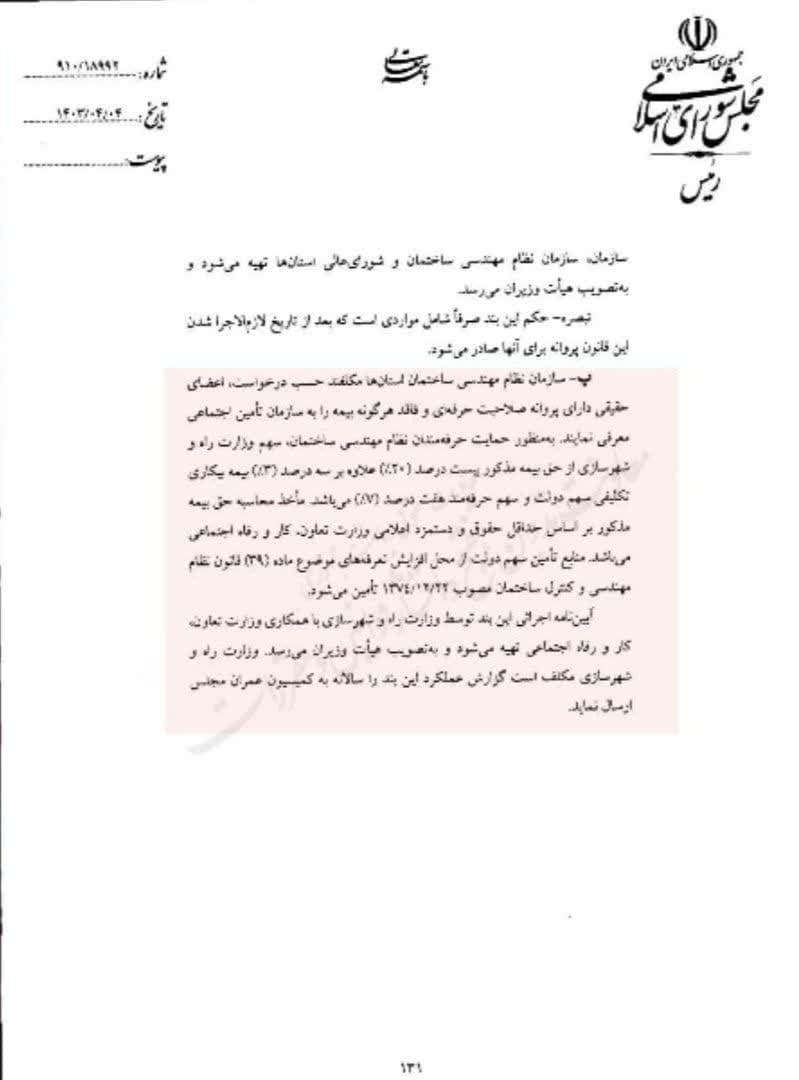 جمهوری اسلامی ایران
مجلس شورای اسلامی
رئیس
باسمه تعالی
شماره: ۹۱۰/۱۸۹۹۲
تاریخ: ۱۴۰۳/۰۴/۰۴
پیوست:
سازمان، سازمان نظام مهندسی ساختمان و شورای‌عالی استان‌ها تهیه می‌شود و
به‌تصویب هیأت وزیران می‌رسد.
تبصره- حکم این بند صرفاً شامل مواردی است که بعد از تاریخ لازم‌الاجرا شدن
این قانون پروانه برای آنها صادر می‌شود.
پ- سازمان نظام مهندسی ساختمان استان‌ها مکلفند حسب درخواست، اعضای
حقیقی دارای پروانه صلاحیت حرفه‌ای و فاقد هرگونه بیمه را به سازمان تأمین اجتماعی
معرفی نمایند. به‌منظور حمایت حرفه‌مندان نظام مهندسی ساختمان، سهم وزارت راه و
شهرسازی از حق بیمه مذکور بیست درصد (۲۰٪) علاوه بر سه درصد (۳٪) بیمه بیکاری
تکلیفی سهم دولت و سهم حرفه‌مند هفت درصد (۷٪) می‌باشد. مأخذ محاسبه حق بیمه
مذکور بر اساس حداقل حقوق و دستمزد اعلامی وزارت تعاون، کار و رفاه اجتماعی
می‌باشد. منابع تأمین سهم دولت از محل افزایش تعرفه‌های موضوع ماده (۳۹) قانون نظام
مهندسی و کنترل ساختمان مصوب ۱۳۷۴/۱۲/۲۲ تأمین می‌شود.
آیین‌نامه اجرائی این بند توسط وزارت راه و شهرسازی با همکاری وزارت تعاون،
کار و رفاه اجتماعی تهیه می‌شود و به‌تصویب هیأت وزیران می‌رسد. وزارت راه و
شهرسازی مکلف است گزارش عملکرد این بند را سالانه به کمیسیون عمران مجلس
ارسال نماید.
۱۳۱